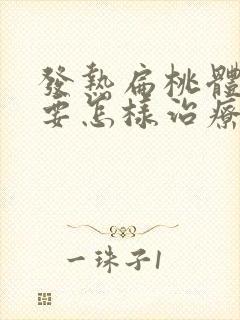 發熱扁桃體
要怎樣治療
一珠子1